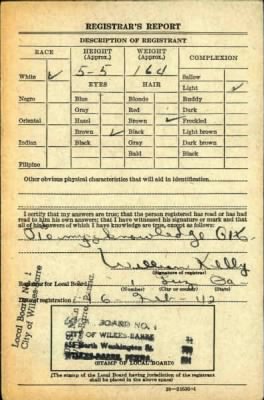 REGISTRAR'S REPORT
DESCRIPTION OF REGISTRANT
RACE
HEIGHT
(Approx.)
WEIGHT
(Approx.)
COMPLEXION
White ✓
5-5
164
Sallow
EYES
HAIR
Light ✓
Negro
Blue
Blonde
Ruddy
Gray
Red
Dark
Oriental
Hazel
Brown ✓
Freckled
Brown ✓
Black
Light brown
Indian
Black
Gray
Dark brown
Bald
Black
Filipino
Other obvious physical characteristics that will aid in identification
I certify that my answers are true; that the person registered has read or has had
read to him his own answers; that I have witnessed his signature or mark and that
all of his answers of which I have knowledge are true, except as follows:
knowledge
William Kelly
(Signature of registrar)
Registrar for Local Board
Luz Pa
(Number)
(City or county)
(State)
registration
Local Board No. 1
City of Wilkes-Barre
BOARD NO. 1
CITY OF WILKES-BARRE
North Washington St.
WILKES-BARRE, PENNA
(STAMP OF LOCAL BOARD)
(The stamp of the Local Board having jurisdiction of the registrant
shall be placed in the above space)